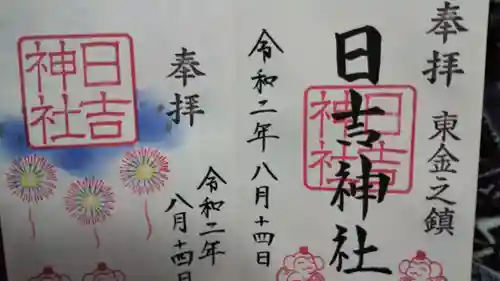 奉拝　東金之鎮
日吉神社
日吉神社
令和二年八月十四日
奉拝
令和二年
八月十四日
日吉神社